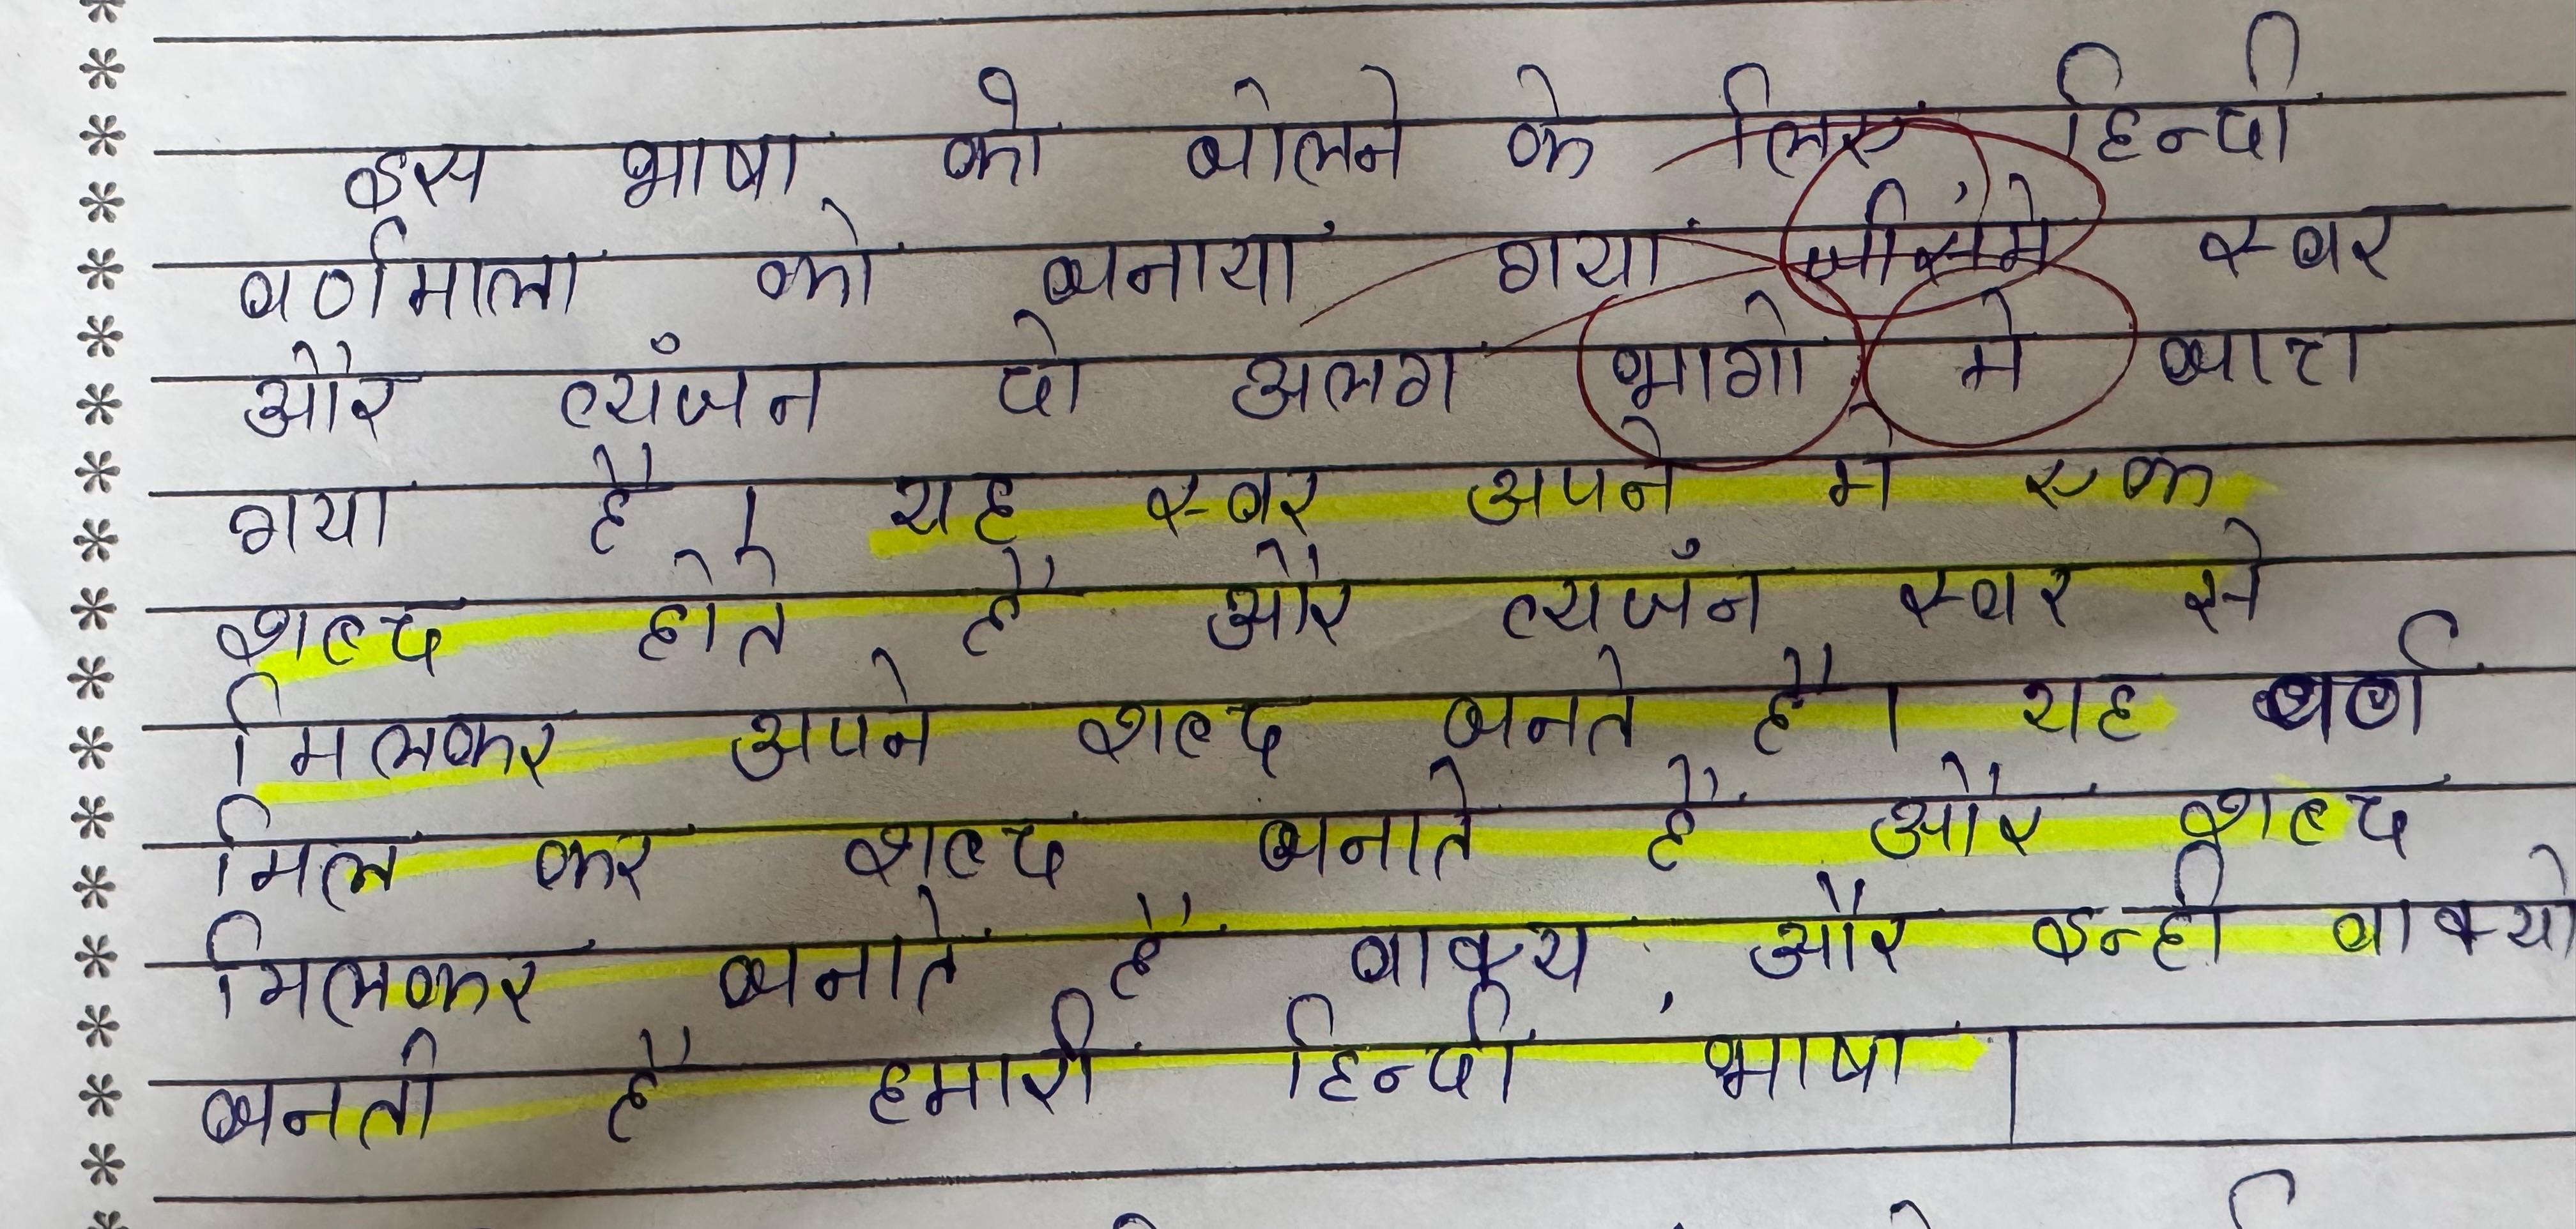 इस भाषा को बोलने के लिए हिन्दी
वर्णमाला को बनाया गया जीसमे स्वर
और व्यँजन दो अलग भागो मे बाटा
गया है । यह स्वर अपने मे एक
शब्द होते है और व्यजँन स्वर से
मिलकर अपने शब्द बनते है । यह वर्ण
मिल कर शब्द बनाते है और शब्द
मिलकर बनाते है वाक्य , और इन्ही वाक्यो
बनती है हमारी हिन्दी भाषा ।